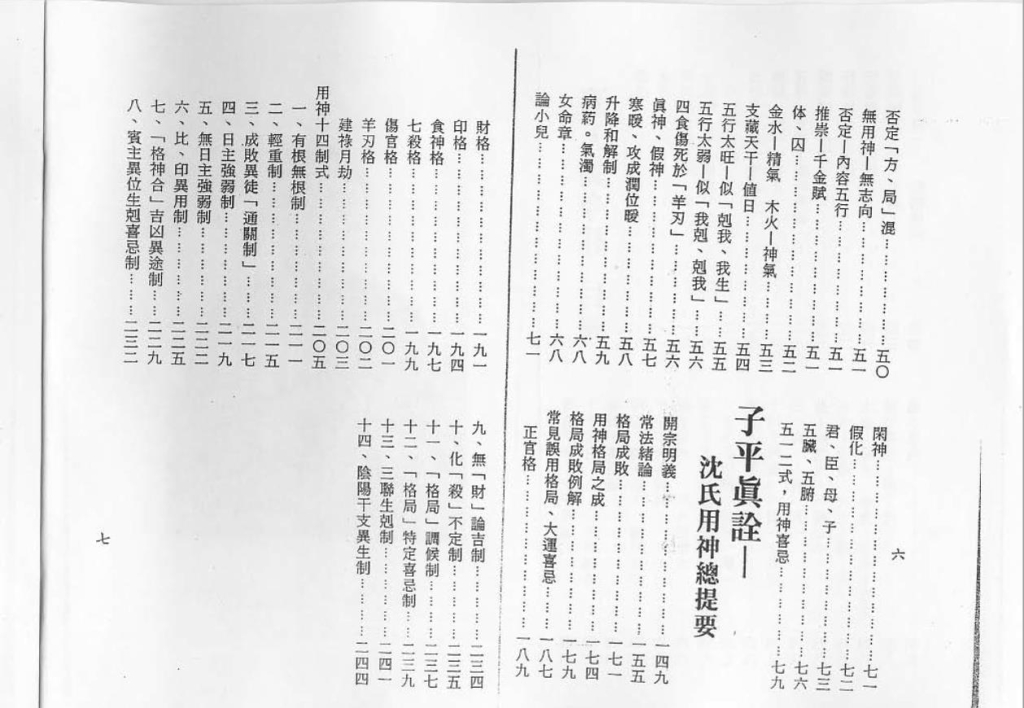 否定「方、局」混………………五〇
無用神—無志向………………五一
否定—內容五行………………五一
推崇—千金賦………………五一
体、囚………………五二
金水—精氣　木火—神氣………五三
支藏天干—值日………………五四
五行太旺—似「剋我、我生」……五五
五行太弱—似「我剋、剋我」……五六
四食傷死於「羊刃」…………五六
眞神、假神………………五七
寒暖、攻成潤位暖…………五八
升降和解制………………五九
病葯。氣濁………………六八
女命章………………六八
論小兒………………七一
閑神………………七一
假化………………七二
君、臣、母、子………………七三
五臟、五腑………………七六
五一二式，用神喜忌…………七九
子平眞詮—
沈氏用神總提要
開宗明義………………一四九
常法緒論………………一五五
格局成敗………………一七一
用神格局之成………………一七四
格局成敗例解………………一七九
常見誤用格局、大運喜忌……一八七
正官格………………一八九
六
財格………………一九一
印格………………一九四
食神格………………一九七
七殺格………………一九九
傷官格………………二〇一
羊刃格………………二〇二
建祿月劫………………二〇三
用神十四制式………………二〇五
一、有根無根制………………二一一
二、輕重制………………二一五
三、成敗異徒「通關制」………二一七
四、日主強弱制………………二一九
五、無日主強弱制…………二二二
六、比、印異用制…………二二五
七、「格神合」吉凶異途制……二二九
八、賓主異位生剋喜忌制……二三二
九、無「財」論吉制…………二三四
十、化「殺」不定制…………二三五
十一、「格局」調候制………二三七
十二、「格局」特定喜忌制……二三九
十三、三聯生剋制…………二四一
十四、陰陽干支異生制………二四四
七